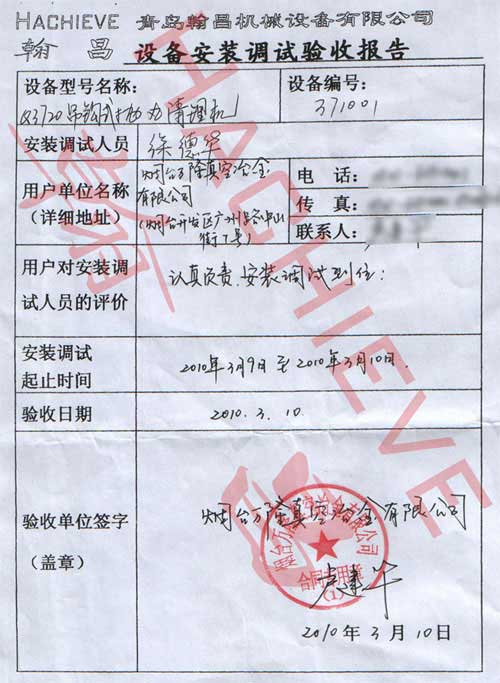 HACHIEVE 青岛翰昌机械设备有限公司
翰昌 设备安装调试验收报告
设备型号名称：
Q3720吊钩式抛丸清理机
设备编号：
371001
安装调试人员
徐德华
用户单位名称
（详细地址）
烟台万隆真空冶金
有限公司
（烟台开发区广州路
街7号）
电 话：
传 真：
联系人：
用户对安装调
试人员的评价
认真负责、安装调试到位：
安装调试
起止时间
2010年3月9日至2010年3月10日.
验收日期
2010.3.10
验收单位签字
（盖章）
烟台万隆真空冶金有限公司
烟台万隆真空冶金有限公司
合同专用章
(1)
2010年3月10日
HACHIEVE
翰昌